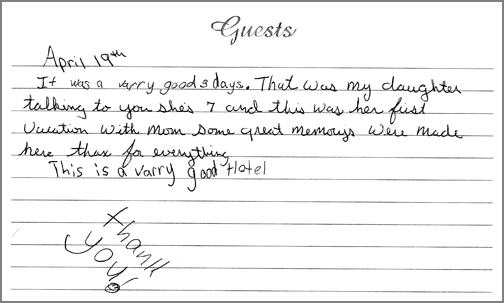 Guests
April 19th
It was a varry good 3 days. That was my daughter
talking to you she's 7 and this was her fust
Vacation with mom some great memorys were made
here thax for everything
This is a varry good Hotel
thank
you!